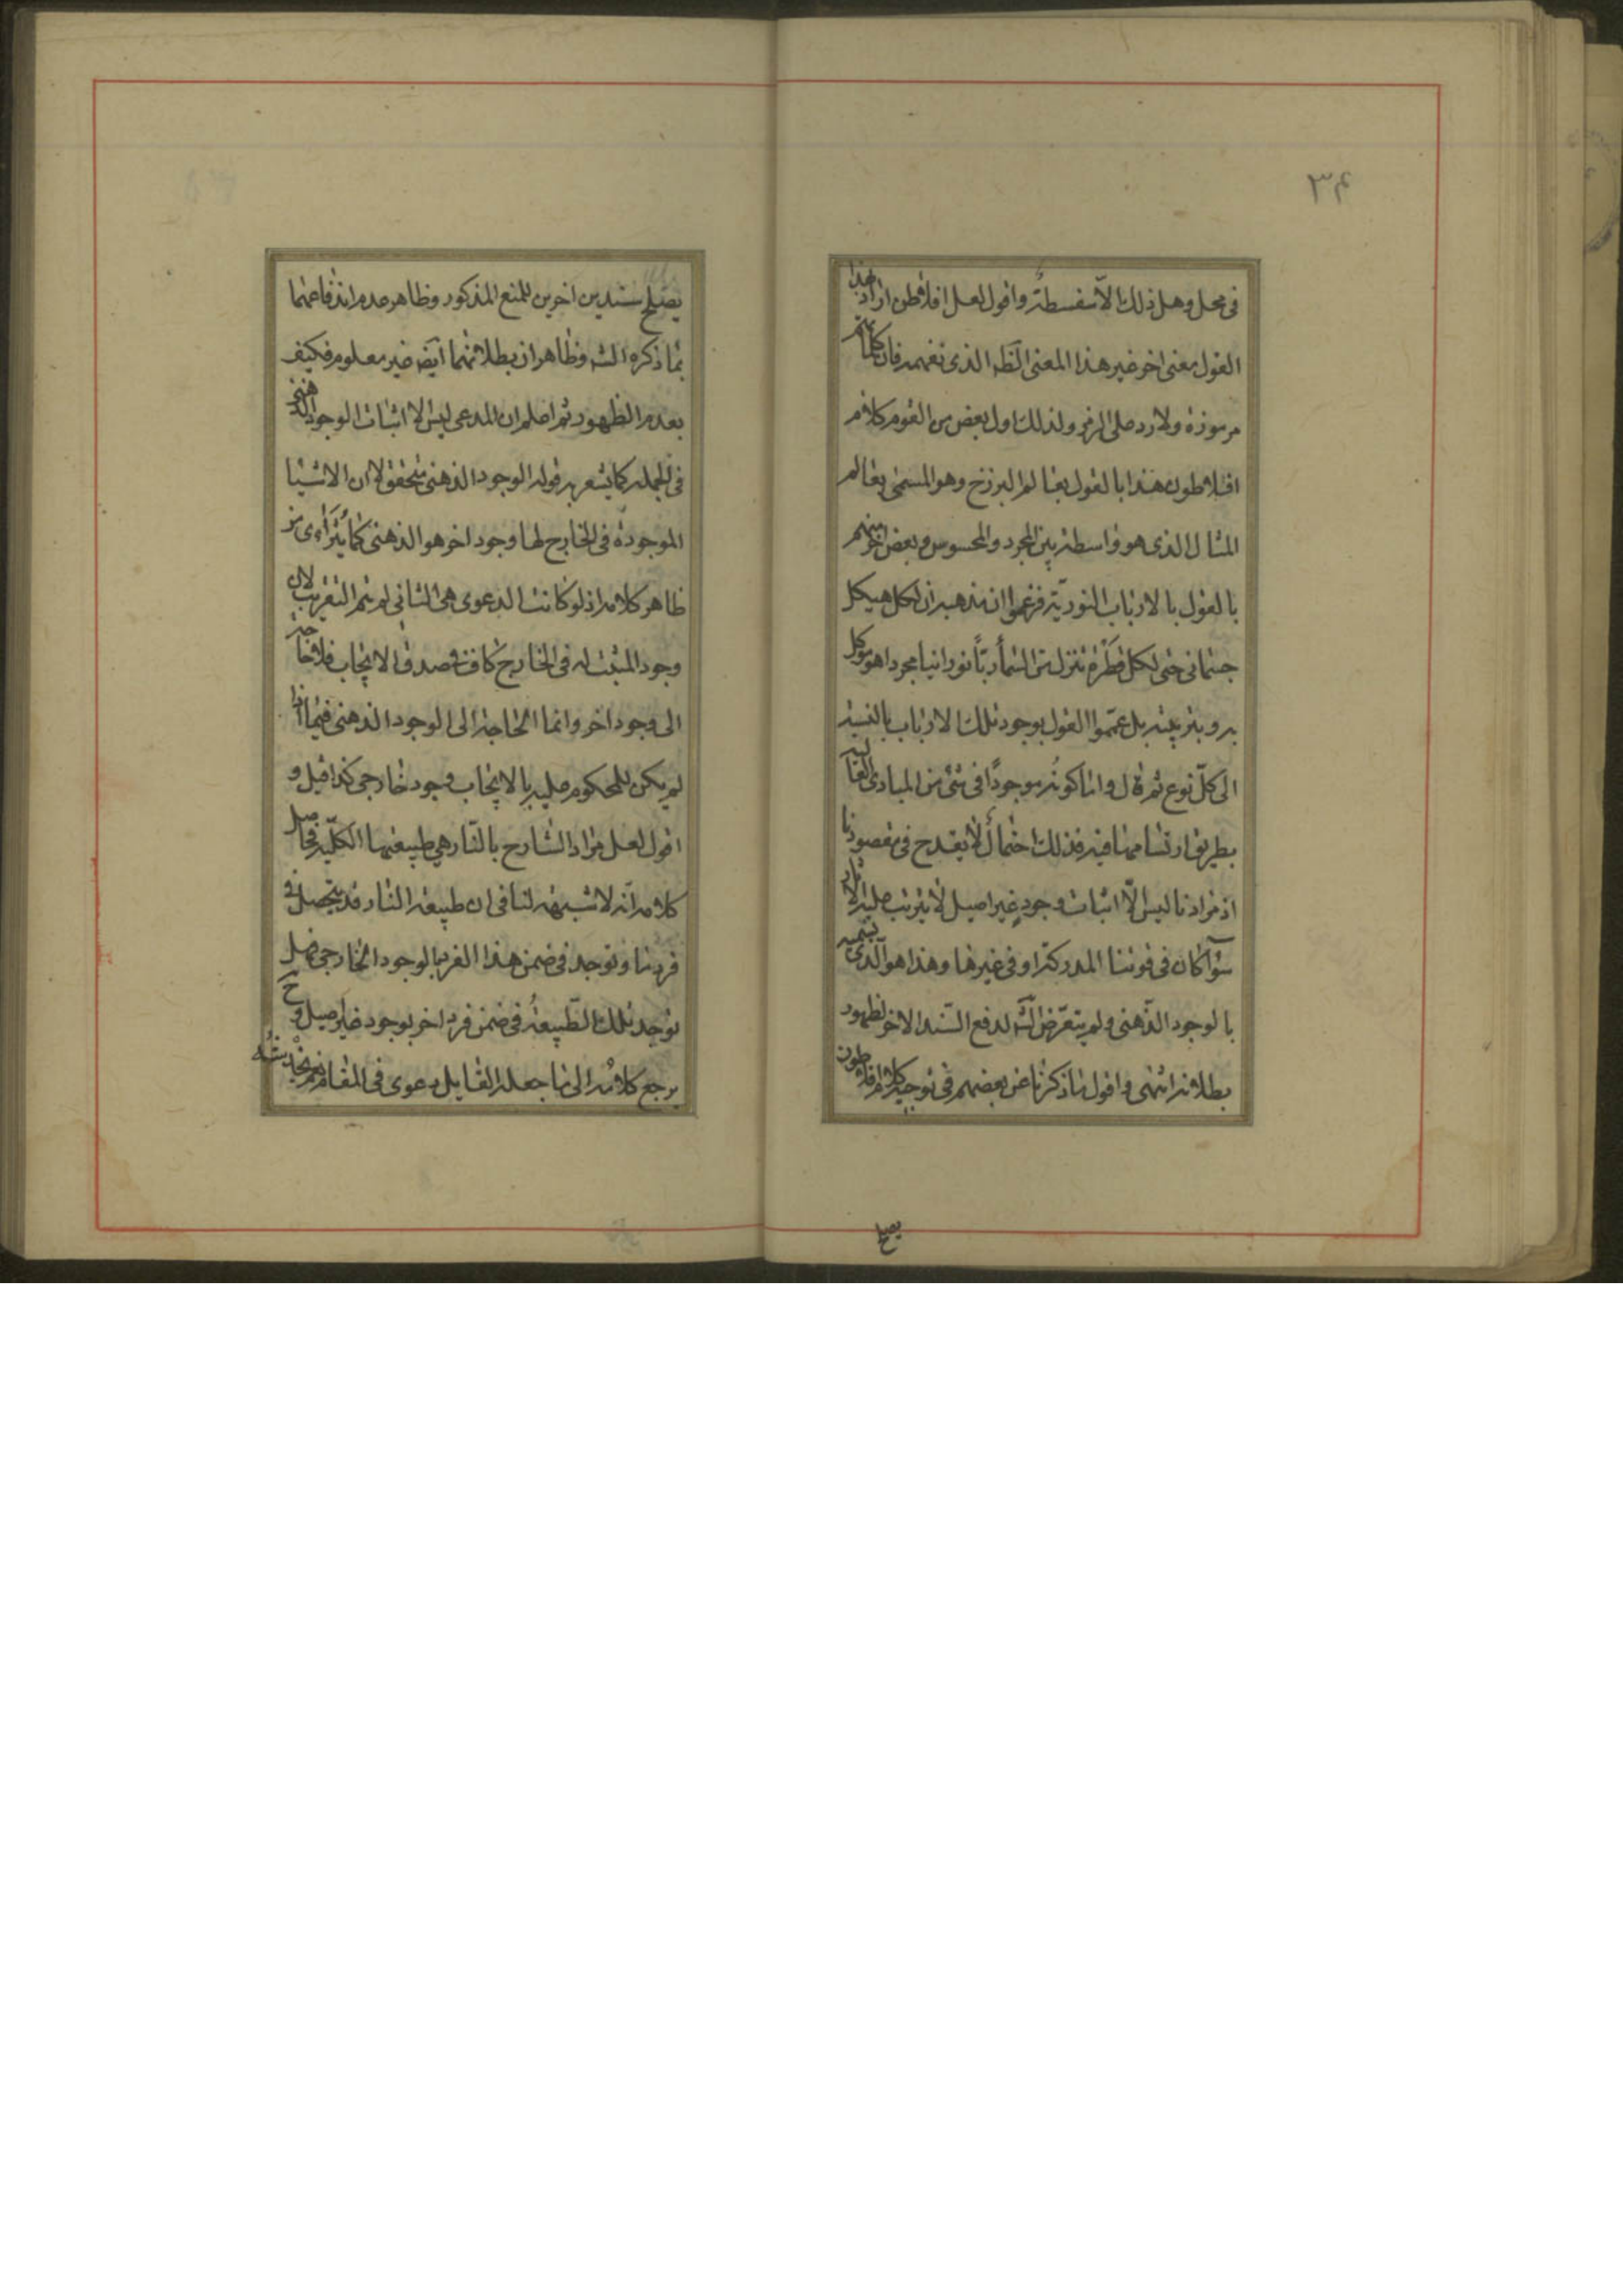 ۳۴
فى محل وهل ذلك الا سفسطة واقول لعل افلاطن اراد بهذا
القول معنى اخر غير هذا المعنى الظه الذى نفهمه فان كلماتهم
مرموزة ولا رد على الرمز ولذلك اول بعض من القوم كلام
افلاطون هذا بالقول بعالم البرزخ وهو المسمى بعالم
المثال الذى هو واسطة بين المجرد والمحسوس وبعض اخر منهم
بالقول بالارباب النورية فزعموا ان مذهبه ان لكل هيكل
جسمانى حتى لكل قطرة تنزل من السماء ربّاً نورانيا مجردا هو موكل
به وبتربيته بل عمّموا القول بوجود تلك الارباب بالنسبة
الى كلّ نوع ثم قال واما كونه موجودًا فى شئ من المبادى العالية
بطريق ارتسامها فيه فذلك احتمال لا يقدح فى مقصودنا
اذ مرادنا ليس الّا اثبات وجودٍ غير اصيل لا يترتب عليه الآثار
سوآء كان فى قوتنا المدركة او فى غيرها وهذا هو الّذى نسميه
بالوجود الذّهنى ولم يتعرّض الشه لدفع السّند الاخر لظهور
بطلانه انتهى واقول ما ذكرنا عن بعضهم فى توجيه كلام افلاطون
يصلح
يصلح سندين اخرين للمنع المذكور وظاهر عدم اندفاعهما
بما ذكره الشه وظاهر ان بطلانهما ايضه غير معلوم فكيف
بعدم الظهور ثم اعلم ان المدعى ليس الا اثبات الوجود الذهنى
فى الجمله كما يشعر به قوله الوجود الذهنى متحقق لا ان الاشيا
الموجودة فى الخارج لها وجود اخر هو الذهنى كما يتراءى من
ظاهر كلامه اذ لو كانت الدعوى هى الثانى لم يتم التقريب لان
وجود المثبت له فى الخارج كاف فى صدق الايجاب فلا حاجة
الى وجود اخر وانما الحاجة الى الوجود الذهنى فيما اذا
لم يكن للمحكوم عليه بالايجاب وجود خارجى كذا قيل و
اقول لعل مراد الشارح بالنّار هى طبيعتها الكلّيه فحاصل
كلامه انّه لا شبهة لنا فى ان طبيعة النار قد يتحصل فى
فرد ما وتوجد فى ضمن هذا الفرد بالوجود الخارجى فهل
توجد تلك الطّبيعةُ فى ضمن فرد اخر بوجود غير اصيل وح
يرجع كلامه الى ما جعله القايل دعوى فى المقام نعم يخدشه